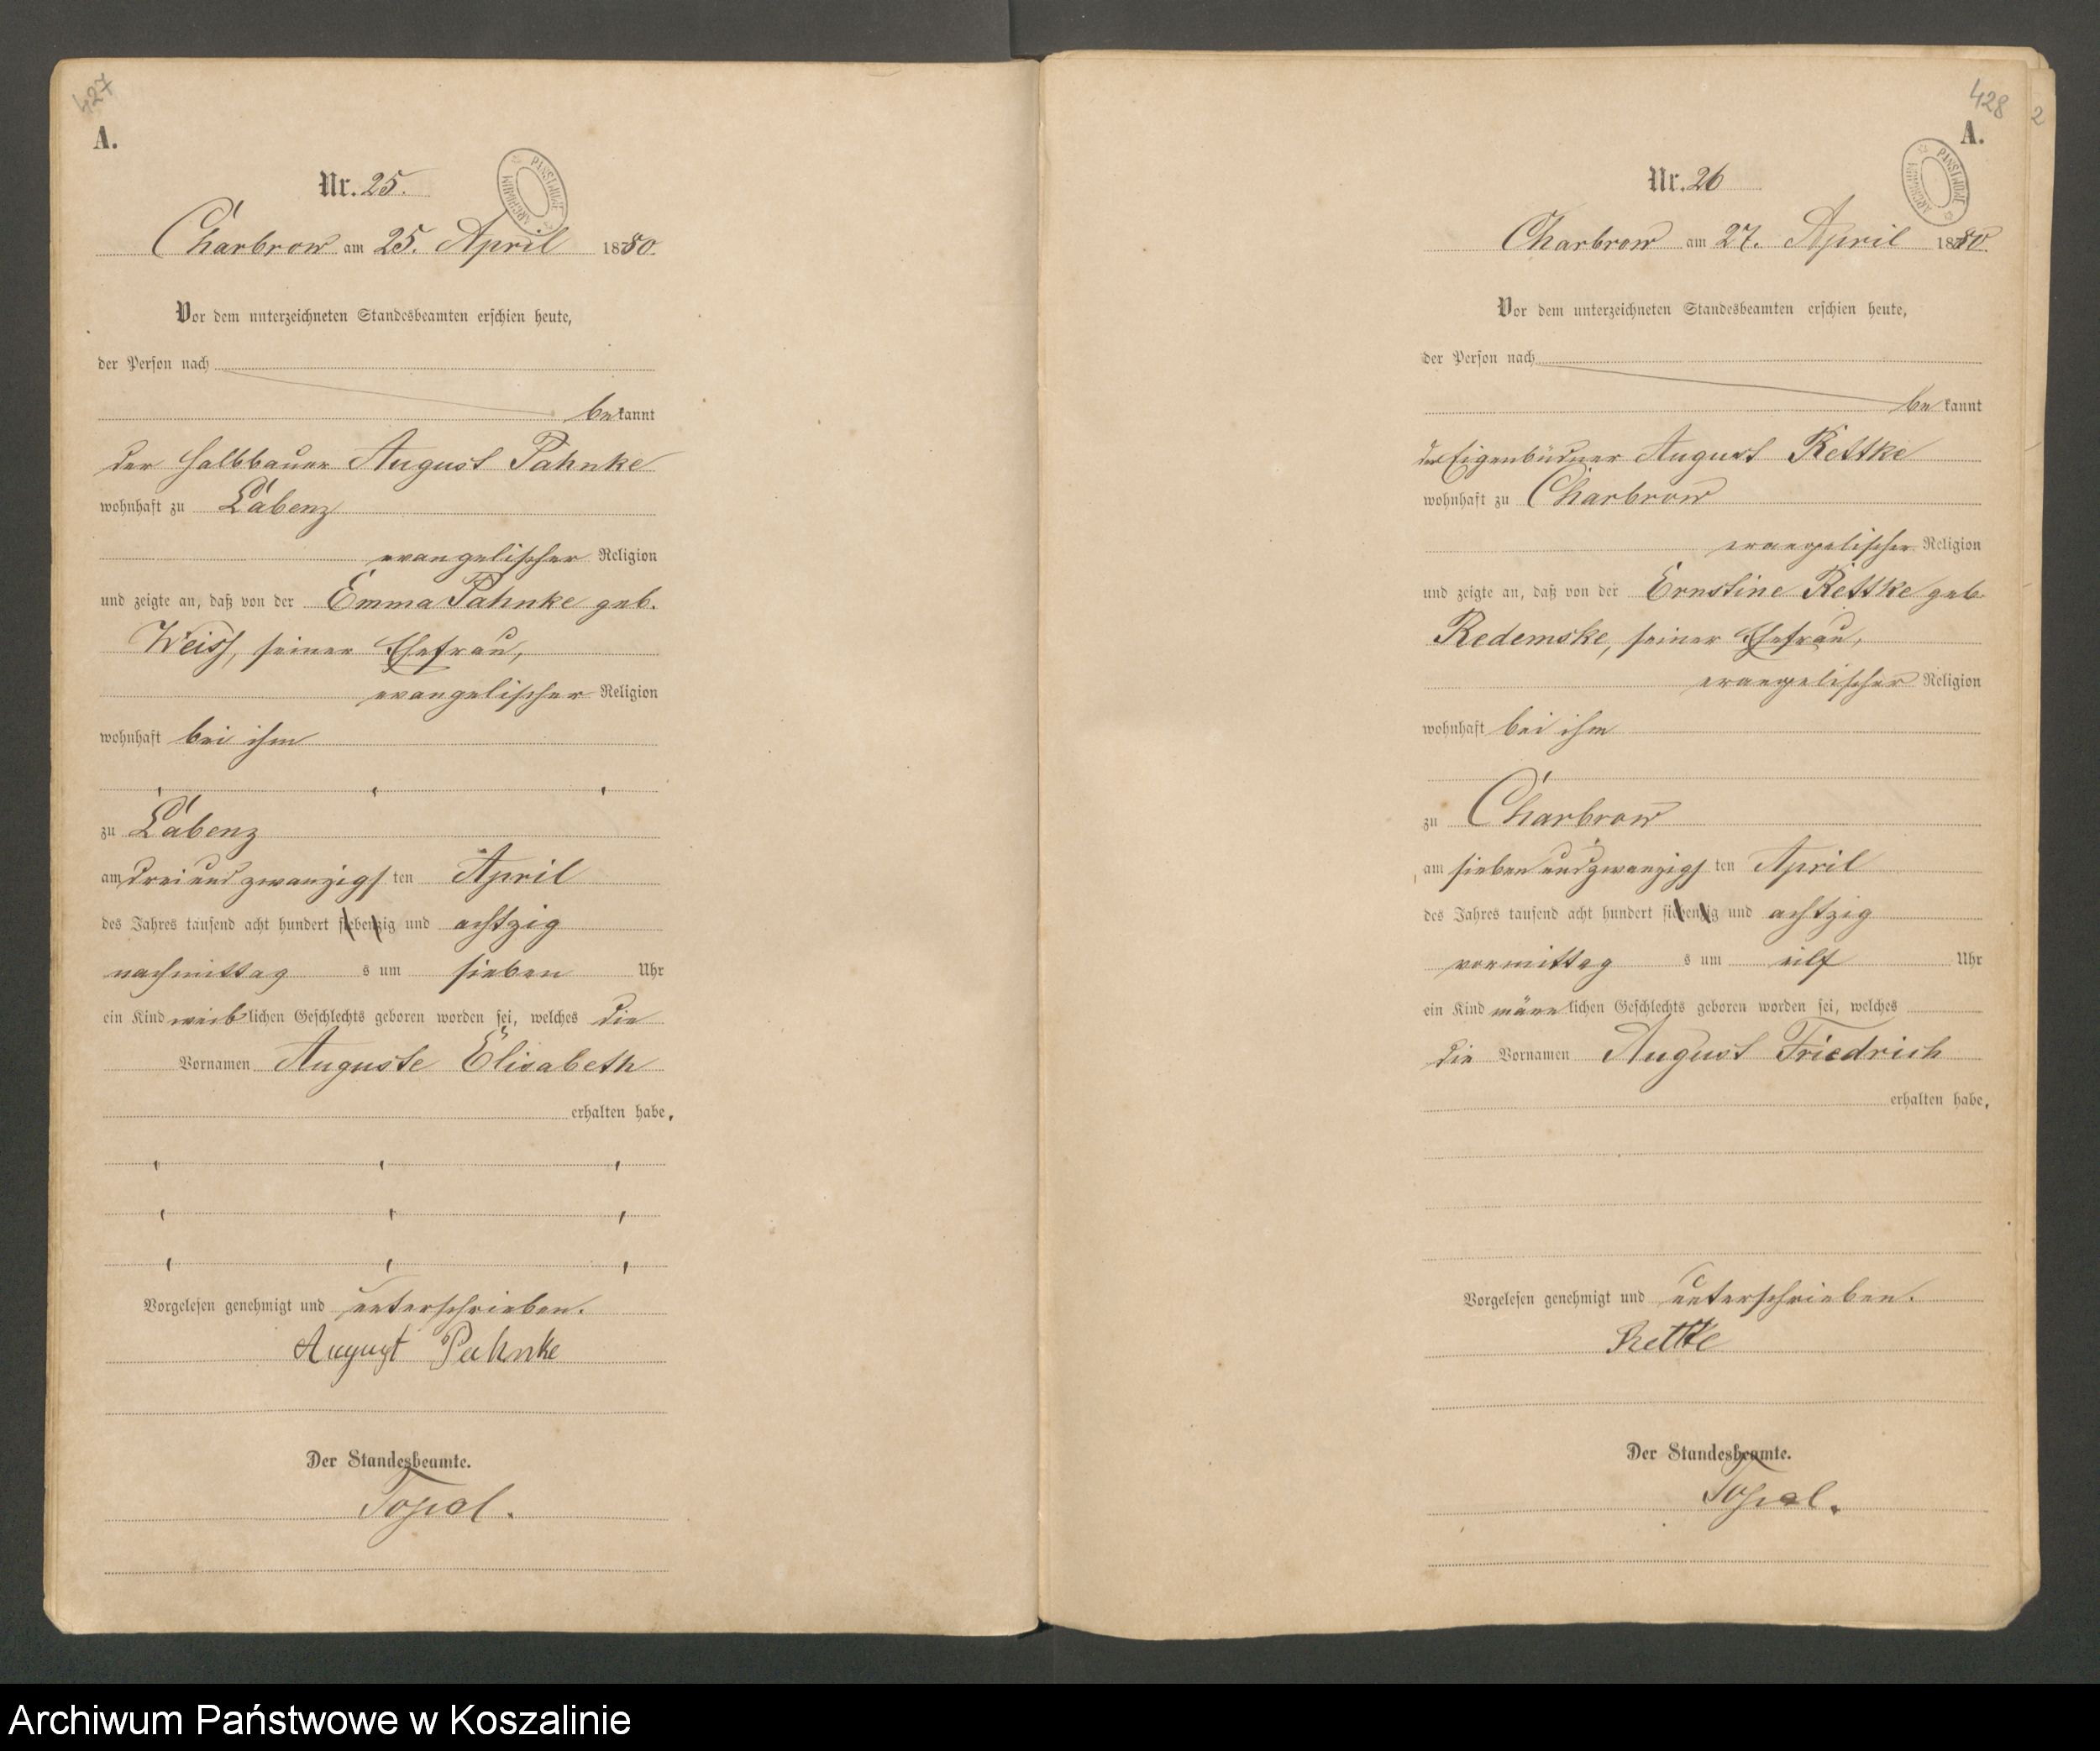 427
A.
Nr. 25.
ARCHIWUM PAŃSTWOWE
Charbrow am 25. April 1880.
Vor dem unterzeichneten Standesbeamten erschien heute,
der Person nach
bekannt
der Halbbauer August Pahnke
wohnhaft zu Labenz
evangelischer Religion
und zeigte an, daß von der Emma Pahnke geb.
Weiss, seiner Ehefrau,
evangelischer Religion
wohnhaft bei ihm
zu Labenz
am dreiundzwanzigsten April
des Jahres tausend acht hundert siebenzig und achtzig
nachmittags um sieben Uhr
ein Kind weiblichen Geschlechts geboren worden sei, welches die
Vornamen Auguste Elisabeth
erhalten habe.
Vorgelesen genehmigt und unterschrieben.
August Pahnke
Der Standesbeamte.
428
2
A.
Nr. 26
ARCHIWUM PAŃSTWOWE
Charbrow am 27. April 1880.
Vor dem unterzeichneten Standesbeamten erschien heute,
der Person nach
bekannt
der Eigenbüdner August Rettke
wohnhaft zu Charbrow
evangelischer Religion
und zeigte an, daß von der Ernstine Rettke geb.
Redemske, seiner Ehefrau,
evangelischer Religion
wohnhaft bei ihm
zu Charbrow
am siebenundzwanzigsten April
des Jahres tausend acht hundert siebenzig und achtzig
vormittags um eilf Uhr
ein Kind männlichen Geschlechts geboren worden sei, welches
die Vornamen August Friedrich
erhalten habe.
Vorgelesen genehmigt und unterschrieben.
Rettke
Der Standesbeamte.
Archiwum Państwowe w Koszalinie